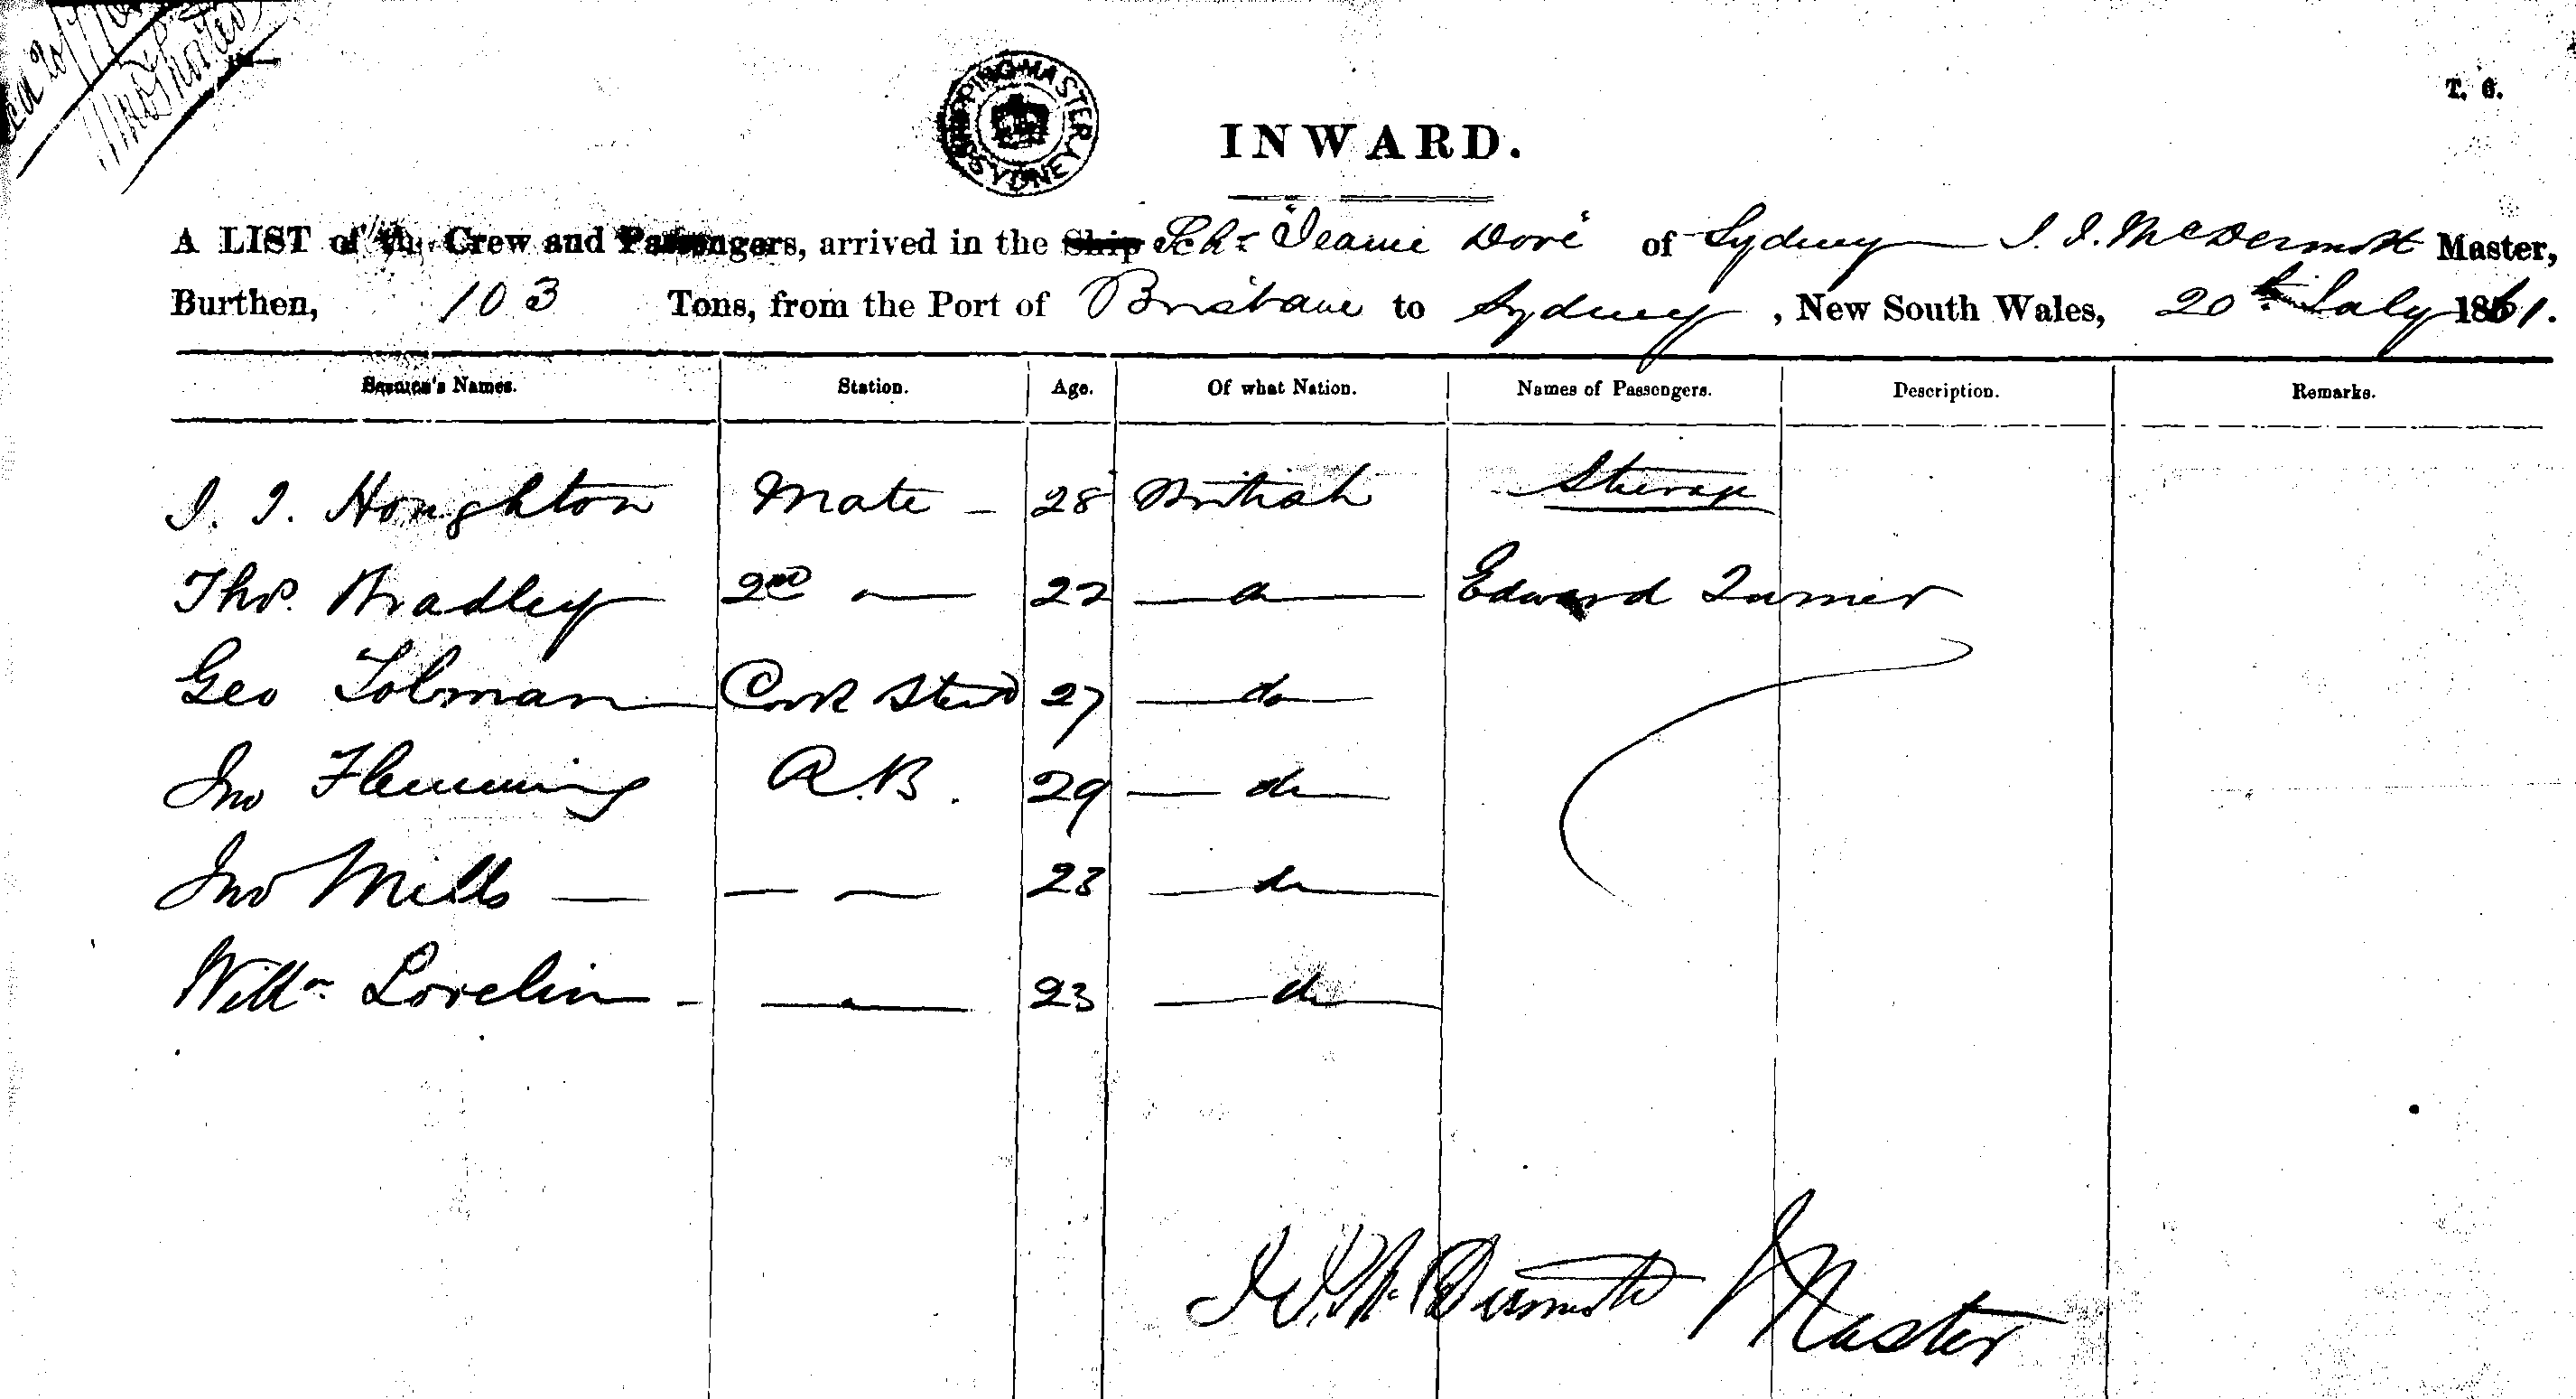 SHIPPING MASTER SYDNEY
T. G.
INWARD.
A LIST of the Crew and Passengers, arrived in the Ship Schr "Jeanie Dove" of Sydney J. J. McDermott Master,
Burthen, 103 Tons, from the Port of Brisbane to Sydney, New South Wales, 20th July 1861.
Seamen's Names. Station. Age. Of what Nation. Names of Passengers. Description. Remarks.
J. J. Houghton Mate - 28 British Steerage
Thos. Bradley 2nd — 22 — do — Edward Turner
Geo Tolman Cook Stewd 27 — do —
Jno Flemming A.B. 29 — do —
Jno Mills — — — 23 — do —
Willm Lovelin - — 23 — do —
J. J. McDermott Master